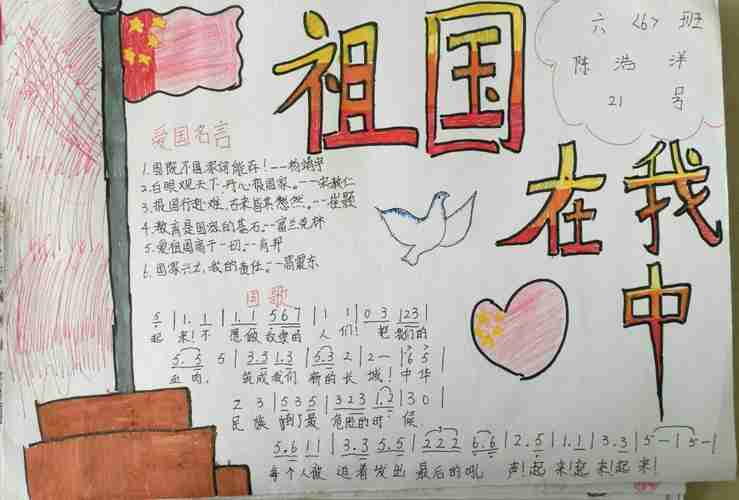 祖国
在我
中
六<6>班
陈浩洋
21号
爱国名言
1.国既不国家何能存!--杨靖宇
2.白眼观天下.丹心报国家。--宋教仁
3.报国行赴难,古来皆共然。--崔颢
4.教育是国族的基石.--富兰克林
5.爱祖国高于一切。--肖邦
6.国 兴亡,我的责任。--高震东
国歌
5 | 1. 1 | 1. 1 5 6 7 | 1 1 | 0 3 1 2 3 |
起 来!不 愿做奴隶的 人 们! 把我们的
5. 5 5 | 3.5 1.3 | 5.3 2 | 2 — | 6 5 |
血肉, 筑成我们 新的长 城!中华
2 3 | 5 3 5 | 3 2 3 1.2 | 3 0 |
民族 到了最 危险的时 候
5.6 1 1 | 3.3 5.5 | 2 2 2 6.6 | 2.5 | 1.1 | 3.3 | 5 — | 5 — |
每个人被 迫着发出 最后的吼 声!起 来!起 来!起 来!